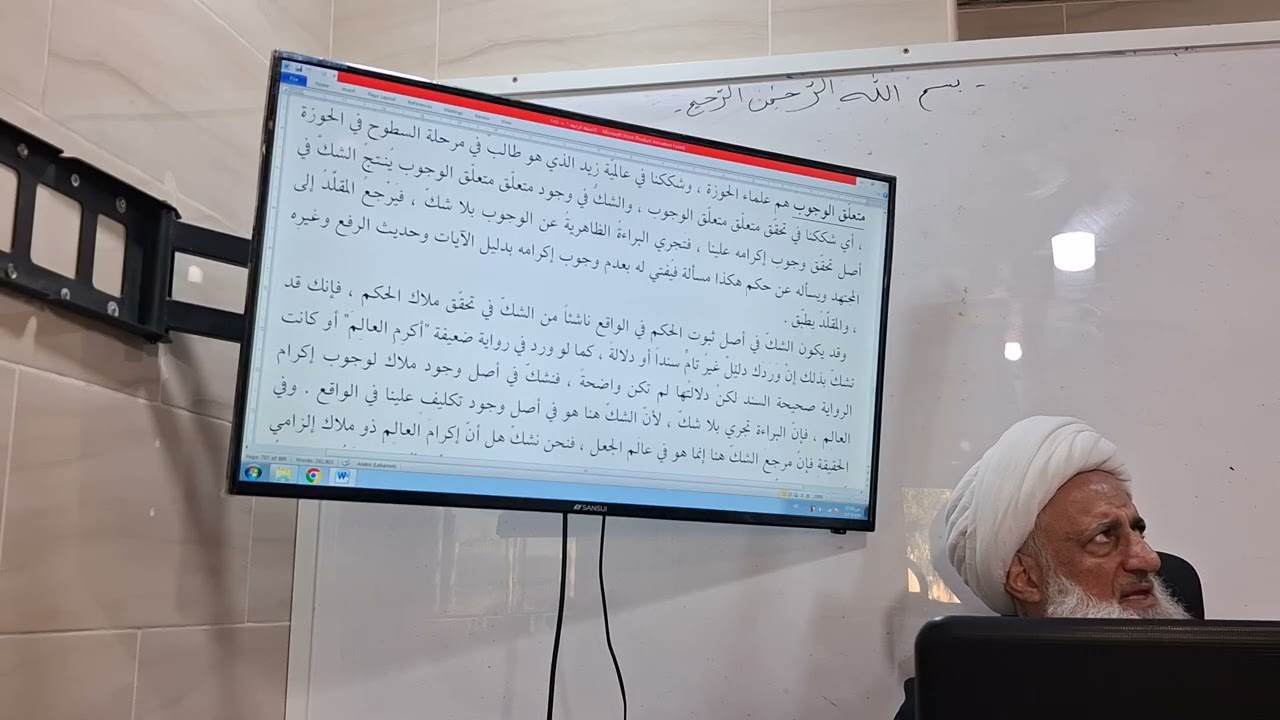 - بسم الله الرّحمٰن الرّحيم -
File Home Insert Page Layout References Mailings Review View
Microsoft Word (Product Activation Failed)
متعلّق الوجوب هم علماء الحوزة ، وشككنا في عالميّة زيد الذي هو طالب في مرحلة السطوح في الحوزة
، أي شككنا في تحقّق متعلّق متعلّق الوجوب ، والشكُّ في وجود متعلّق متعلّق الوجوب ينتجُ الشكّ في
أصل تحقّق وجوب إكرامه علينا ، فتجري البراءة الظاهرية عن الوجوب بلا شكّ ، فيَرْجع المقلّدُ إلى
المجتهد ويسأله عن حكم هكذا مسألة فيُفتي له بعدم وجوب إكرامه بدليل الآيات وحديث الرفع وغيره
، والمقلّد يطبّق .
وقد يكون الشكّ في أصل ثبوت الحكم في الواقع ناشئاً من الشكّ في تحقّق ملاك الحكم ، فإنك قد
تشكّ بذلك إنْ وَرَدك دليلٌ غيرُ تامّ سنداً أو دلالة ، كما لو ورد في رواية ضعيفة "أكرم العالِمَ" أو كانت
الرواية صحيحة السند لكنْ دلالتُها لم تكن واضحةً ، فنشكّ في أصل وجود ملاك لوجوب إكرام
العالم ، فإنّ البراءة تجري بلا شكّ ، لأنّ الشكّ هنا هو في أصل وجود تكليف علينا في الواقع . وفي
الحقيقة فإنّ مرجع الشك هنا إنّما هو في عالَم الجعل ، فنحن نشكّ هل أنّ إكرام العالِم ذو ملاك إلزامي
Arabic (Lebanon)
SANSUI